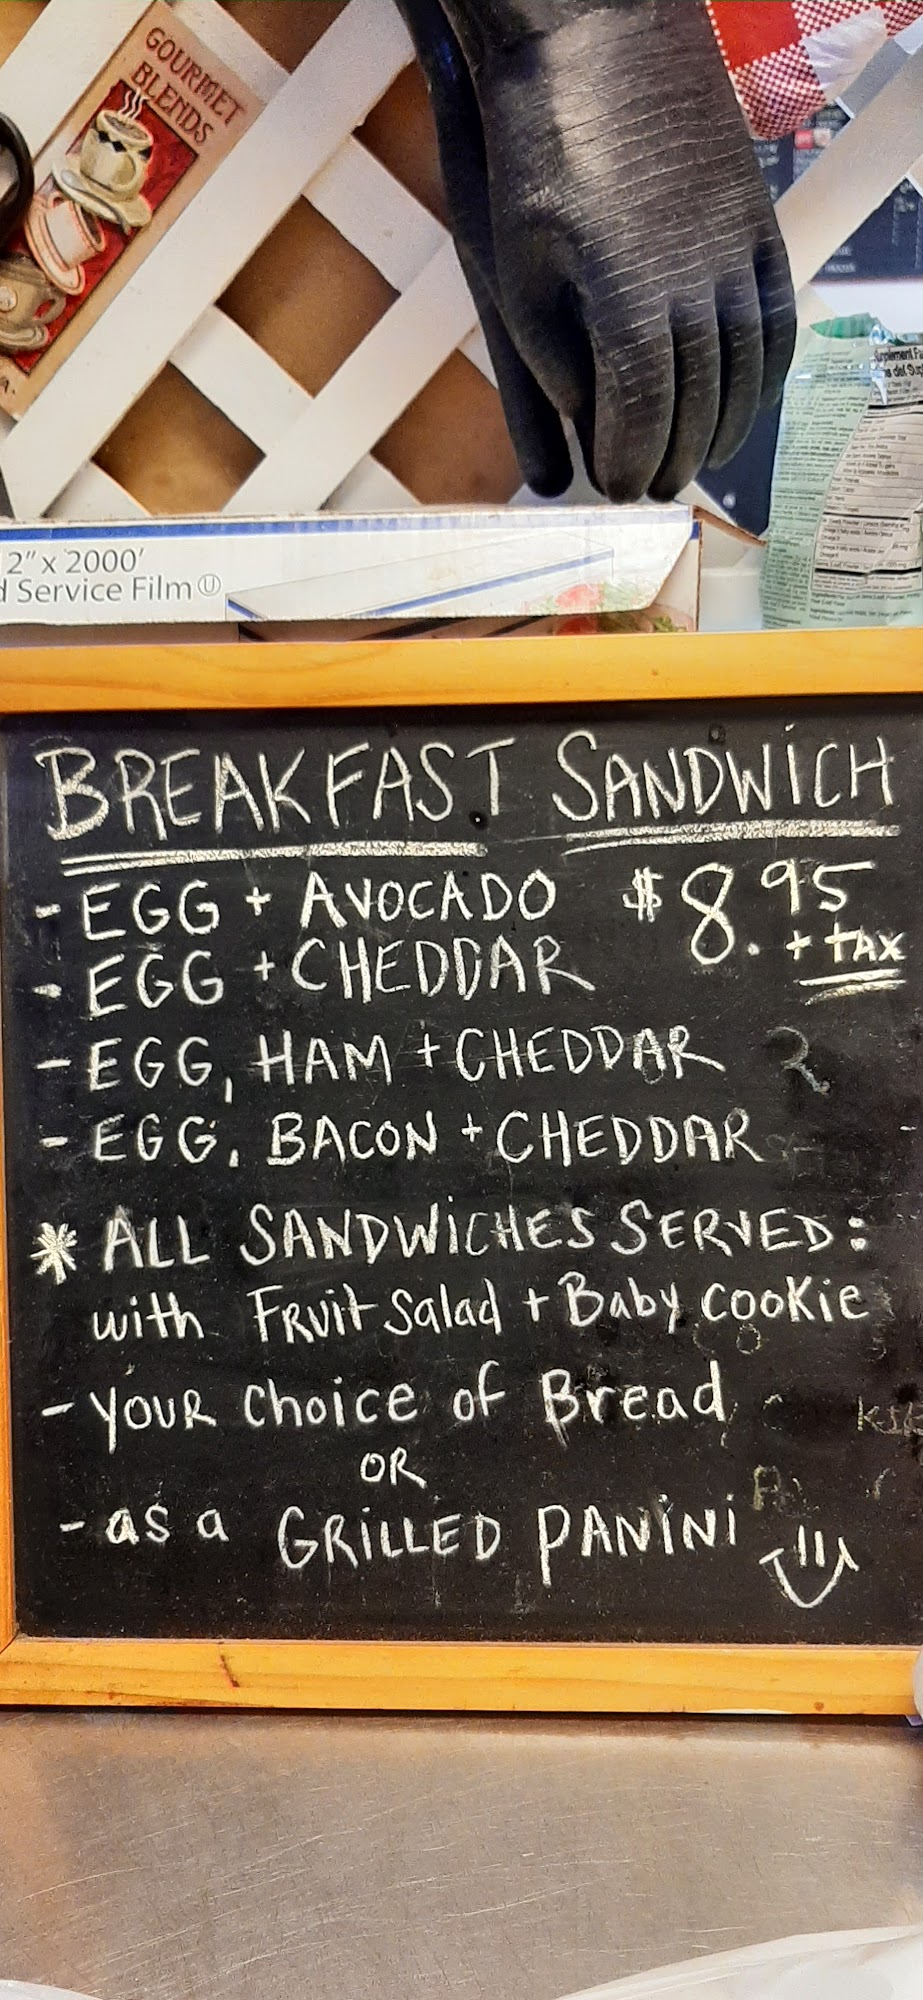 GOURMET
BLENDS
2" x 2000'
d Service Film Ⓤ
BREAKFAST SANDWICH
- EGG + AVOCADO $8.95
+ tAX
- EGG + CHEDDAR
- EGG, HAM + CHEDDAR
- EGG, BACON + CHEDDAR
* ALL SANDWiCHES SERVED:
with FRuit Salad + Baby cooKie
- YOUR choice of Bread
OR
- as a GRiLLED PANiNi